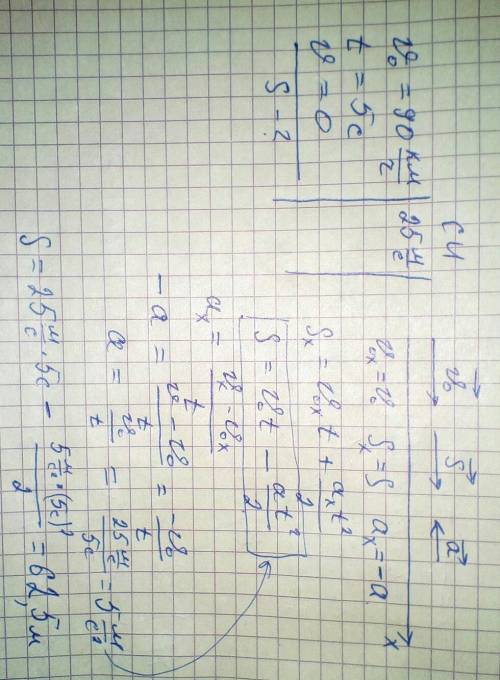 v₀ = 90 км/ч | СИ 25 м/с
t = 5с
v = 0
S - ?
v₀→ S→ a→
x
v₀ₓ = v₀ Sₓ = S aₓ = -a
Sₓ = v₀ₓt + aₓt²/2
S = v₀t - at²/2
aₓ = (vₓ - v₀ₓ)/t
-a = (v - v₀)/t = -v₀/t
a = v₀/t = 25 м/с / 5с = 5 м/с²
S = 25 м/с · 5с - 5 м/с² · (5с)²/2 = 62,5 м